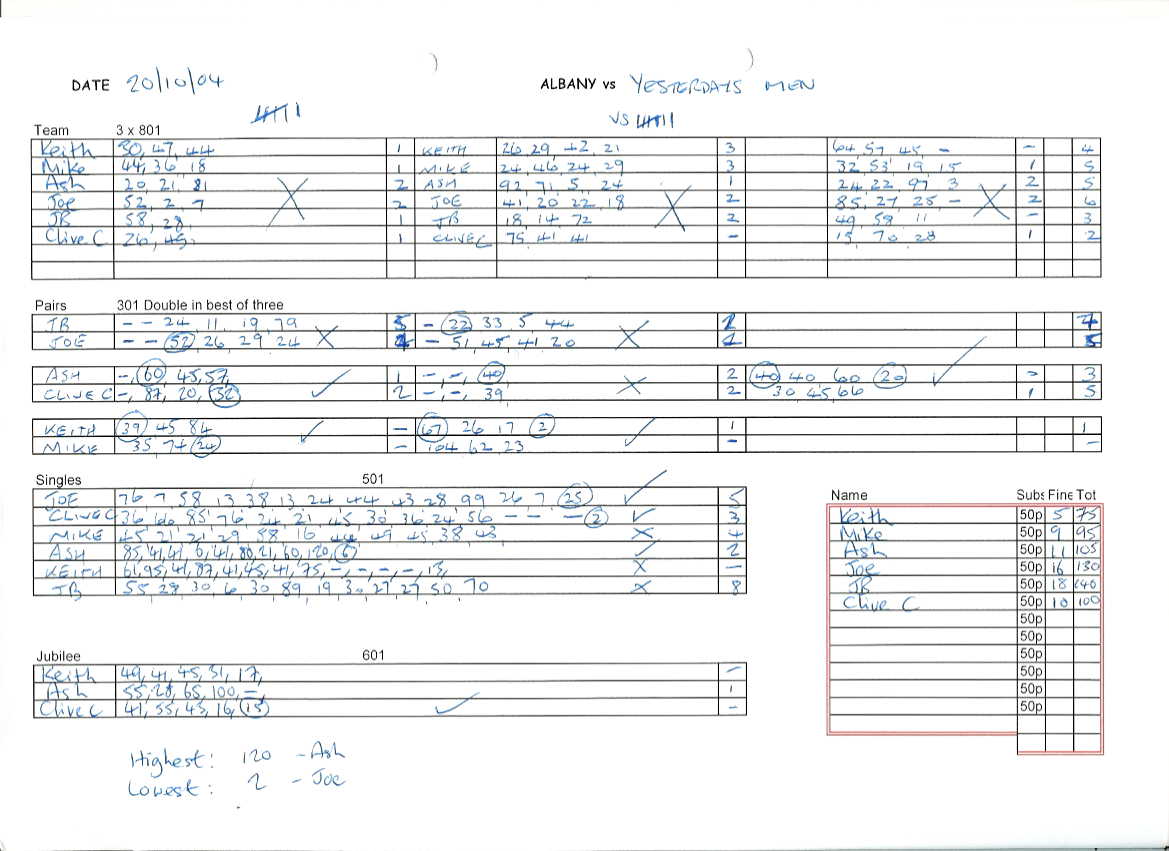 DATE 20/10/04 ALBANY vs YESTERDAYS MEN
VS
Team 3 x 801
Keith 30, 47, 44 1 KEITH 26 29, 42, 21 3 64, 57 45, - - 4
Mike 44, 36, 18 1 MIKE 24, 46, 24, 29 3 32, 53 19 15 1 5
Ash 20, 21, 81 2 ASH 92, 71, 5, 24 1 24, 22, 97 3 2 5
Joe 52, 2, 7 2 JOE 41, 20 22, 18 2 85, 27, 25, - 2 6
JB 58, 28, 1 JB 18, 14, 72 2 49, 59 11 - 3
Clive C 26, 45. 1 CLIVE C 75 41 41 - 15, 70 28 1 2
Pairs 301 Double in best of three
JB - - 24, 11, 19, 79 X 5 - 22 33 5, 44 X 2 7
JOE - - 52, 26, 29 24 X 4 - 51, 45, 41 20 5
ASH -, 60, 45, 57, ✓ 1 -, -, 40 X 2 40 40 60 20 ✓ 3
CLIVE C -, 87, 20, 32 2 -, -, 39 2 30 45, 66 1 5
KEITH 39 45 84 ✓ - 67 26 17 2 ✓ 1 1
MIKE 35, 74 24 - 104 62 23 - -
Singles 501
JOE 76, 7, 58, 13, 38, 13, 24, 44, 43, 28, 99, 26, 7, 25 ✓ 5
CLIVE C 36, 66, 85, 76, 24, 21, 45, 30, 36, 24, 56 - - - - 2 ✓ 3
MIKE 45 21, 21, 29, 58, 16, 44, 49, 45, 38, 43, X 4
ASH 85, 41, 41, 6, 41, 80, 21, 60, 120, 6 ✓ 2
KEITH 61, 95, 41, 87, 41, 45, 41, 75, -, -, -, -, 13, X -
JB 55, 29, 30, 6, 30 89, 19 30, 27, 27, 50, 70 X 8
Name Subs Fine Tot
Keith 50p 5 75
Mike 50p 9 95
Ash 50p 11 105
Joe 50p 16 130
JB 50p 18 140
Clive C 50p 10 100
50p
50p
50p
50p
50p
50p
Jubilee 601
Keith 49, 41, 45, 31, 17, -
Ash 55, 28, 65, 100, -, 1
Clive C 41, 55, 45, 16, 15 ✓ -
Highest: 120 - Ash
Lowest: 2 - Joe